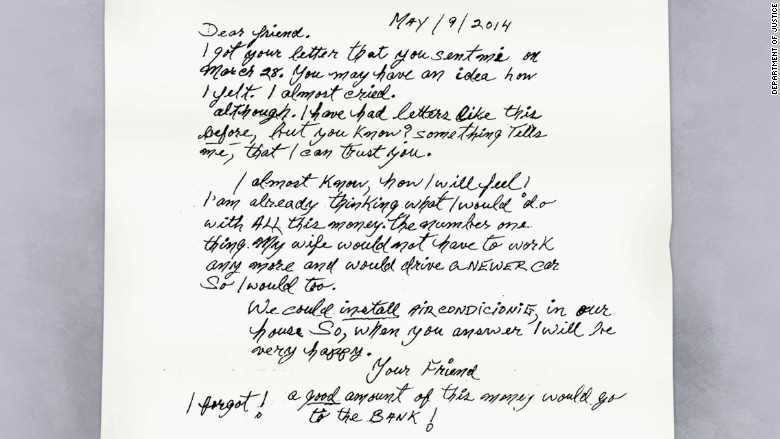 MAY/9/2014
Dear friend.
I got your letter that you sent me on
March 28. You may have an idea how
I felt. I almost cried.
although. I have had letters like this
before, but you know? something Tells
me, that I can trust you.
I almost Know, how I will feel!
I am already thinking what I would do
with ALL this money. the number one
thing. My wife would not have to work
any more and would drive a NEWER car
So I would too.
We could install AIR CONDICIONIG, in our
house So, when you answer I will be
very happy.
Your Friend
I forgot! a good amount of this money would go
to the BANK!
DEPARTMENT OF JUSTICE